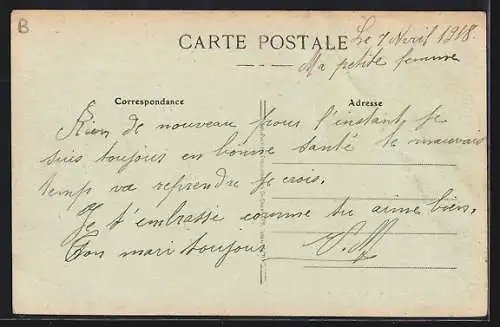 B
CARTE POSTALE
Le 7 Avril 1918.
Ma petite femme
Correspondance
Adresse
Rien de nouveau pour l'instant, je
suis toujours en bonne santé le mauvais
temps va reprendre je crois.
Je t'embrasse comme tu aimes bien.
Ton mari toujours
V. M